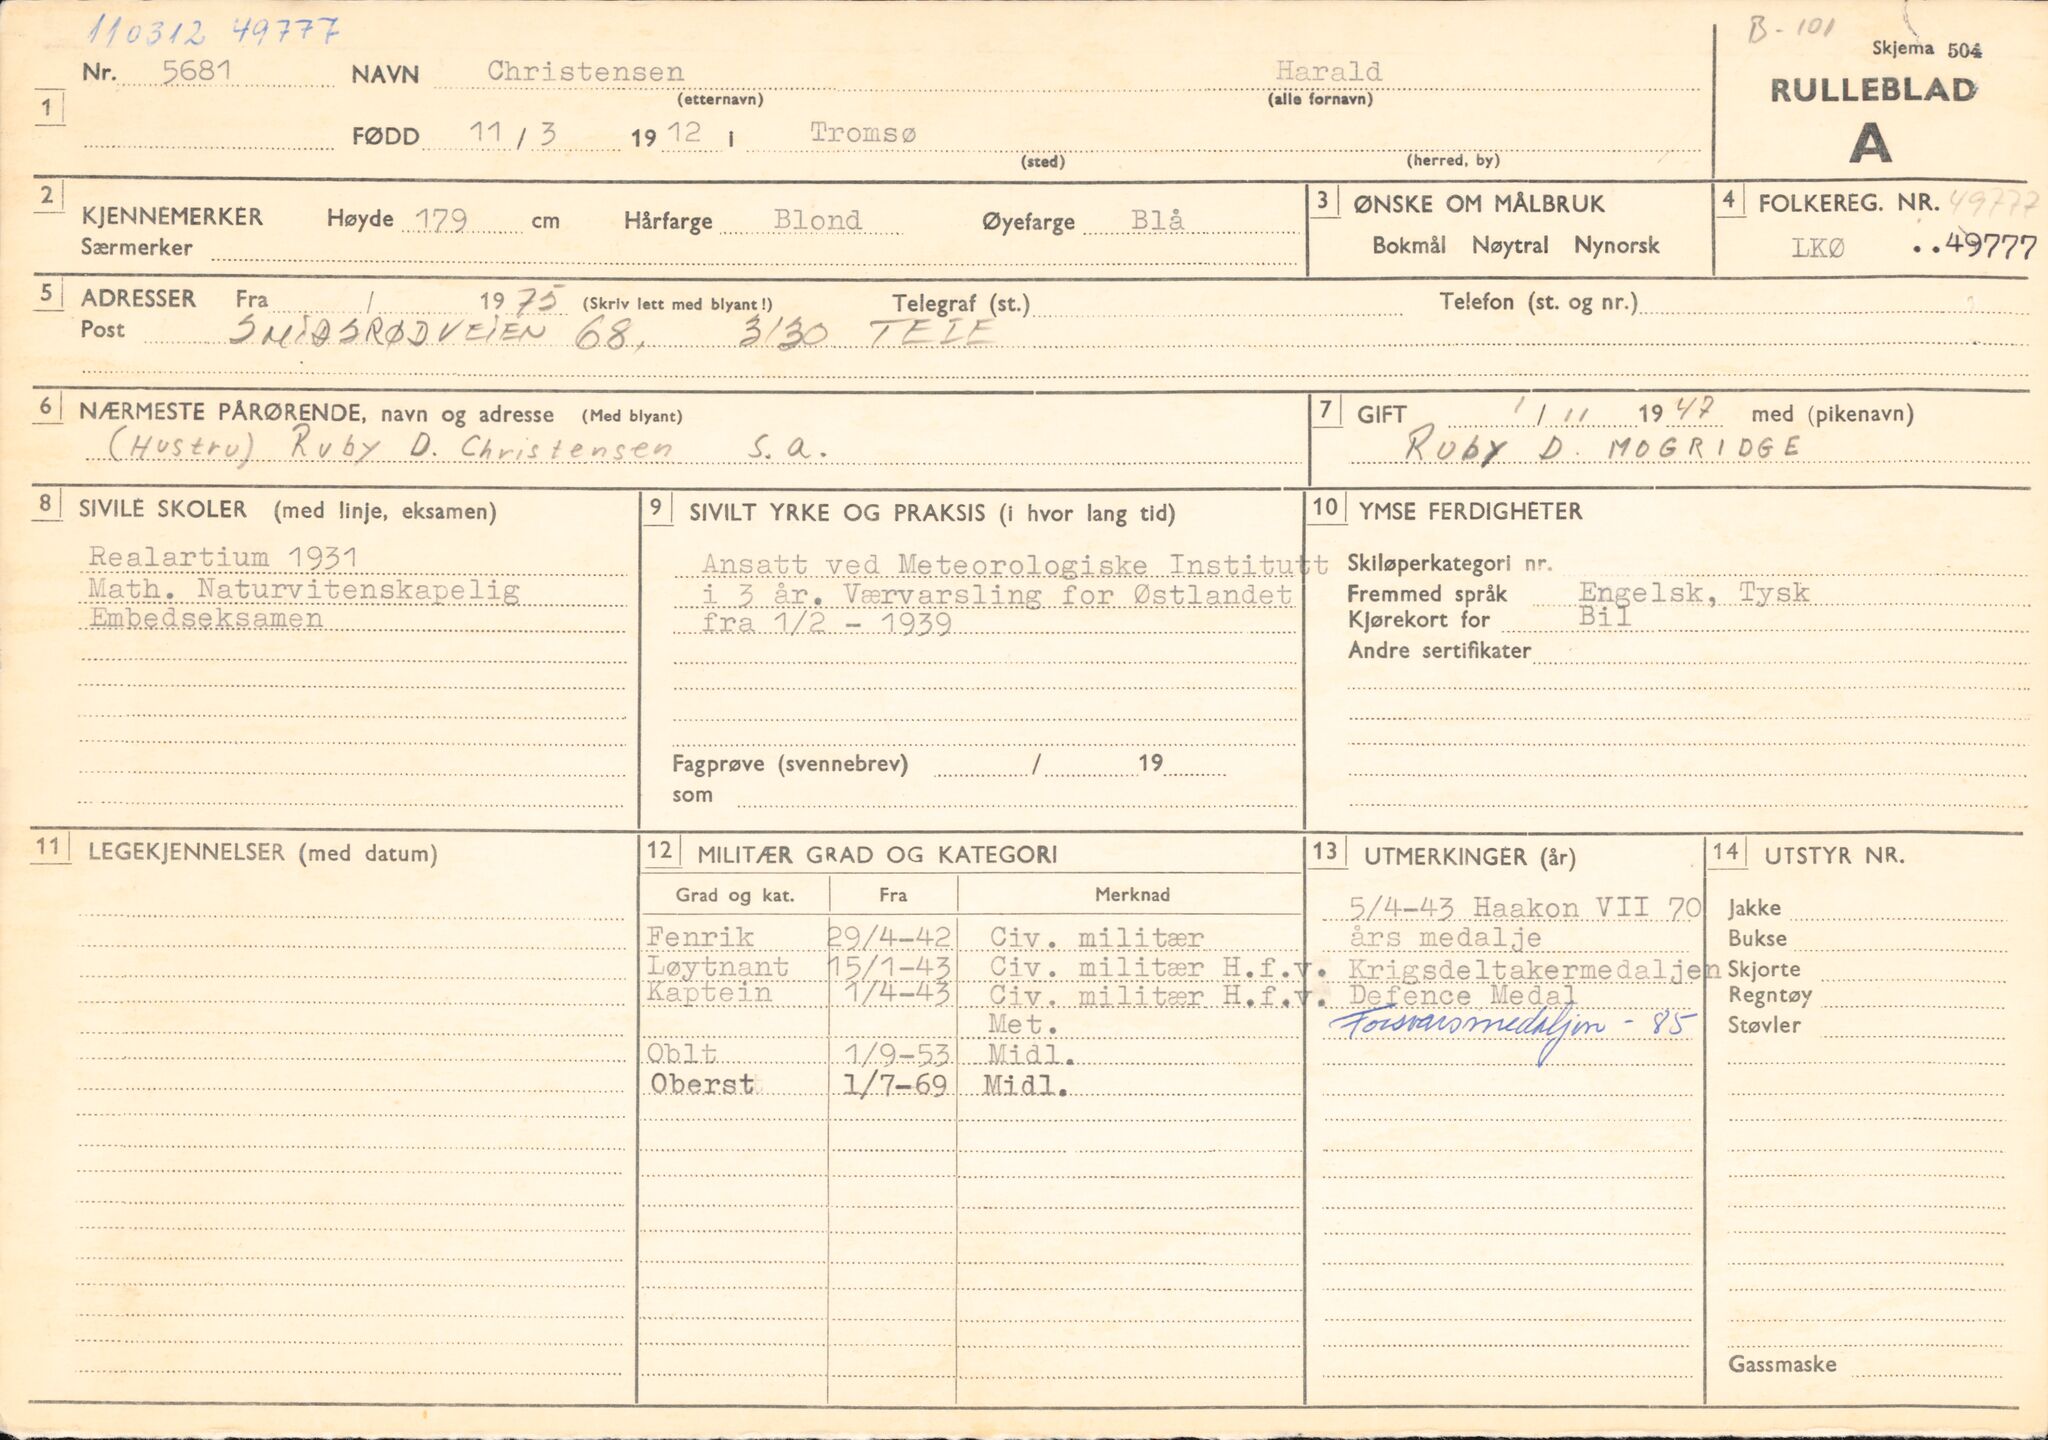 110312 49777
B-101
Skjema 504
Nr. 5681 NAVN Christensen Harald
(etternavn) (alle fornavn)
RULLEBLAD
A
1
FØDD 11 / 3 1912 i Tromsø
(sted) (herred, by)
2 KJENNEMERKER Høyde 179 cm Hårfarge Blond Øyefarge Blå
Særmerker
3 ØNSKE OM MÅLBRUK
Bokmål Nøytral Nynorsk
4 FOLKEREG. NR. 49777
LKØ ..49777
5 ADRESSER Fra / 1975 (Skriv lett med blyant!) Telegraf (st.) Telefon (st. og nr.)
Post SMIDSRØDVEIEN 68, 3130 TEIE
6 NÆRMESTE PÅRØRENDE, navn og adresse (Med blyant)
(Hustru) Ruby D. Christensen S.a.
7 GIFT 1 / 11 1947 med (pikenavn)
Ruby D. MOGRIDGE
8 SIVILE SKOLER (med linje, eksamen)
Realartium 1931
Math. Naturvitenskapelig
Embedseksamen
9 SIVILT YRKE OG PRAKSIS (i hvor lang tid)
Ansatt ved Meteorologiske Institutt
i 3 år. Værvarsling for Østlandet
fra 1/2 - 1939
Fagprøve (svennebrev) / 19
som
10 YMSE FERDIGHETER
Skiløperkategori nr.
Fremmed språk Engelsk, Tysk
Kjørekort for Bil
Andre sertifikater
11 LEGEKJENNELSER (med datum)
12 MILITÆR GRAD OG KATEGORI
Grad og kat. Fra Merknad
Fenrik 29/4-42 Civ. militær
Løytnant 15/1-43 Civ. militær H.f.v.
Kaptein 1/4-43 Civ. militær H.f.v.
Met.
Oblt 1/9-53 Midl.
Oberst 1/7-69 Midl.
13 UTMERKINGER (år)
5/4-43 Haakon VII 70
års medalje
Krigsdeltakermedaljen
Defence Medal
Forsvarsmedaljen - 85
14 UTSTYR NR.
Jakke
Bukse
Skjorte
Regntøy
Støvler
Gassmaske